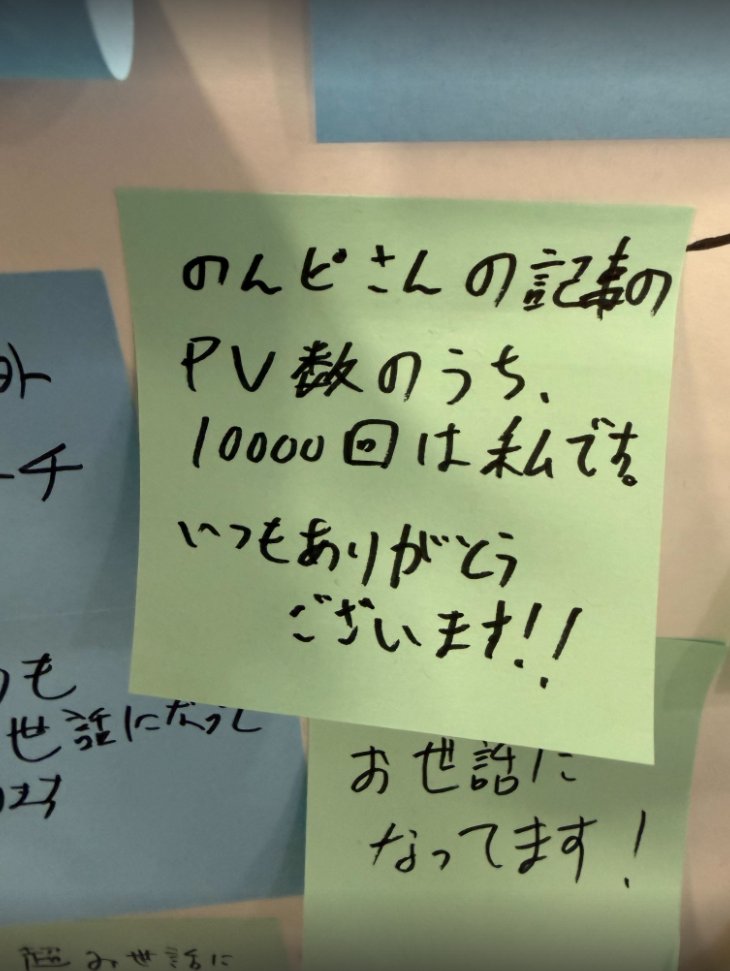 のんピさんの記事の
PV数のうち、
10000回は私です。
いつもありがとう
ございます!!
お世話に
なってます!
ーチ
も
世話になって
ます
超お世話に